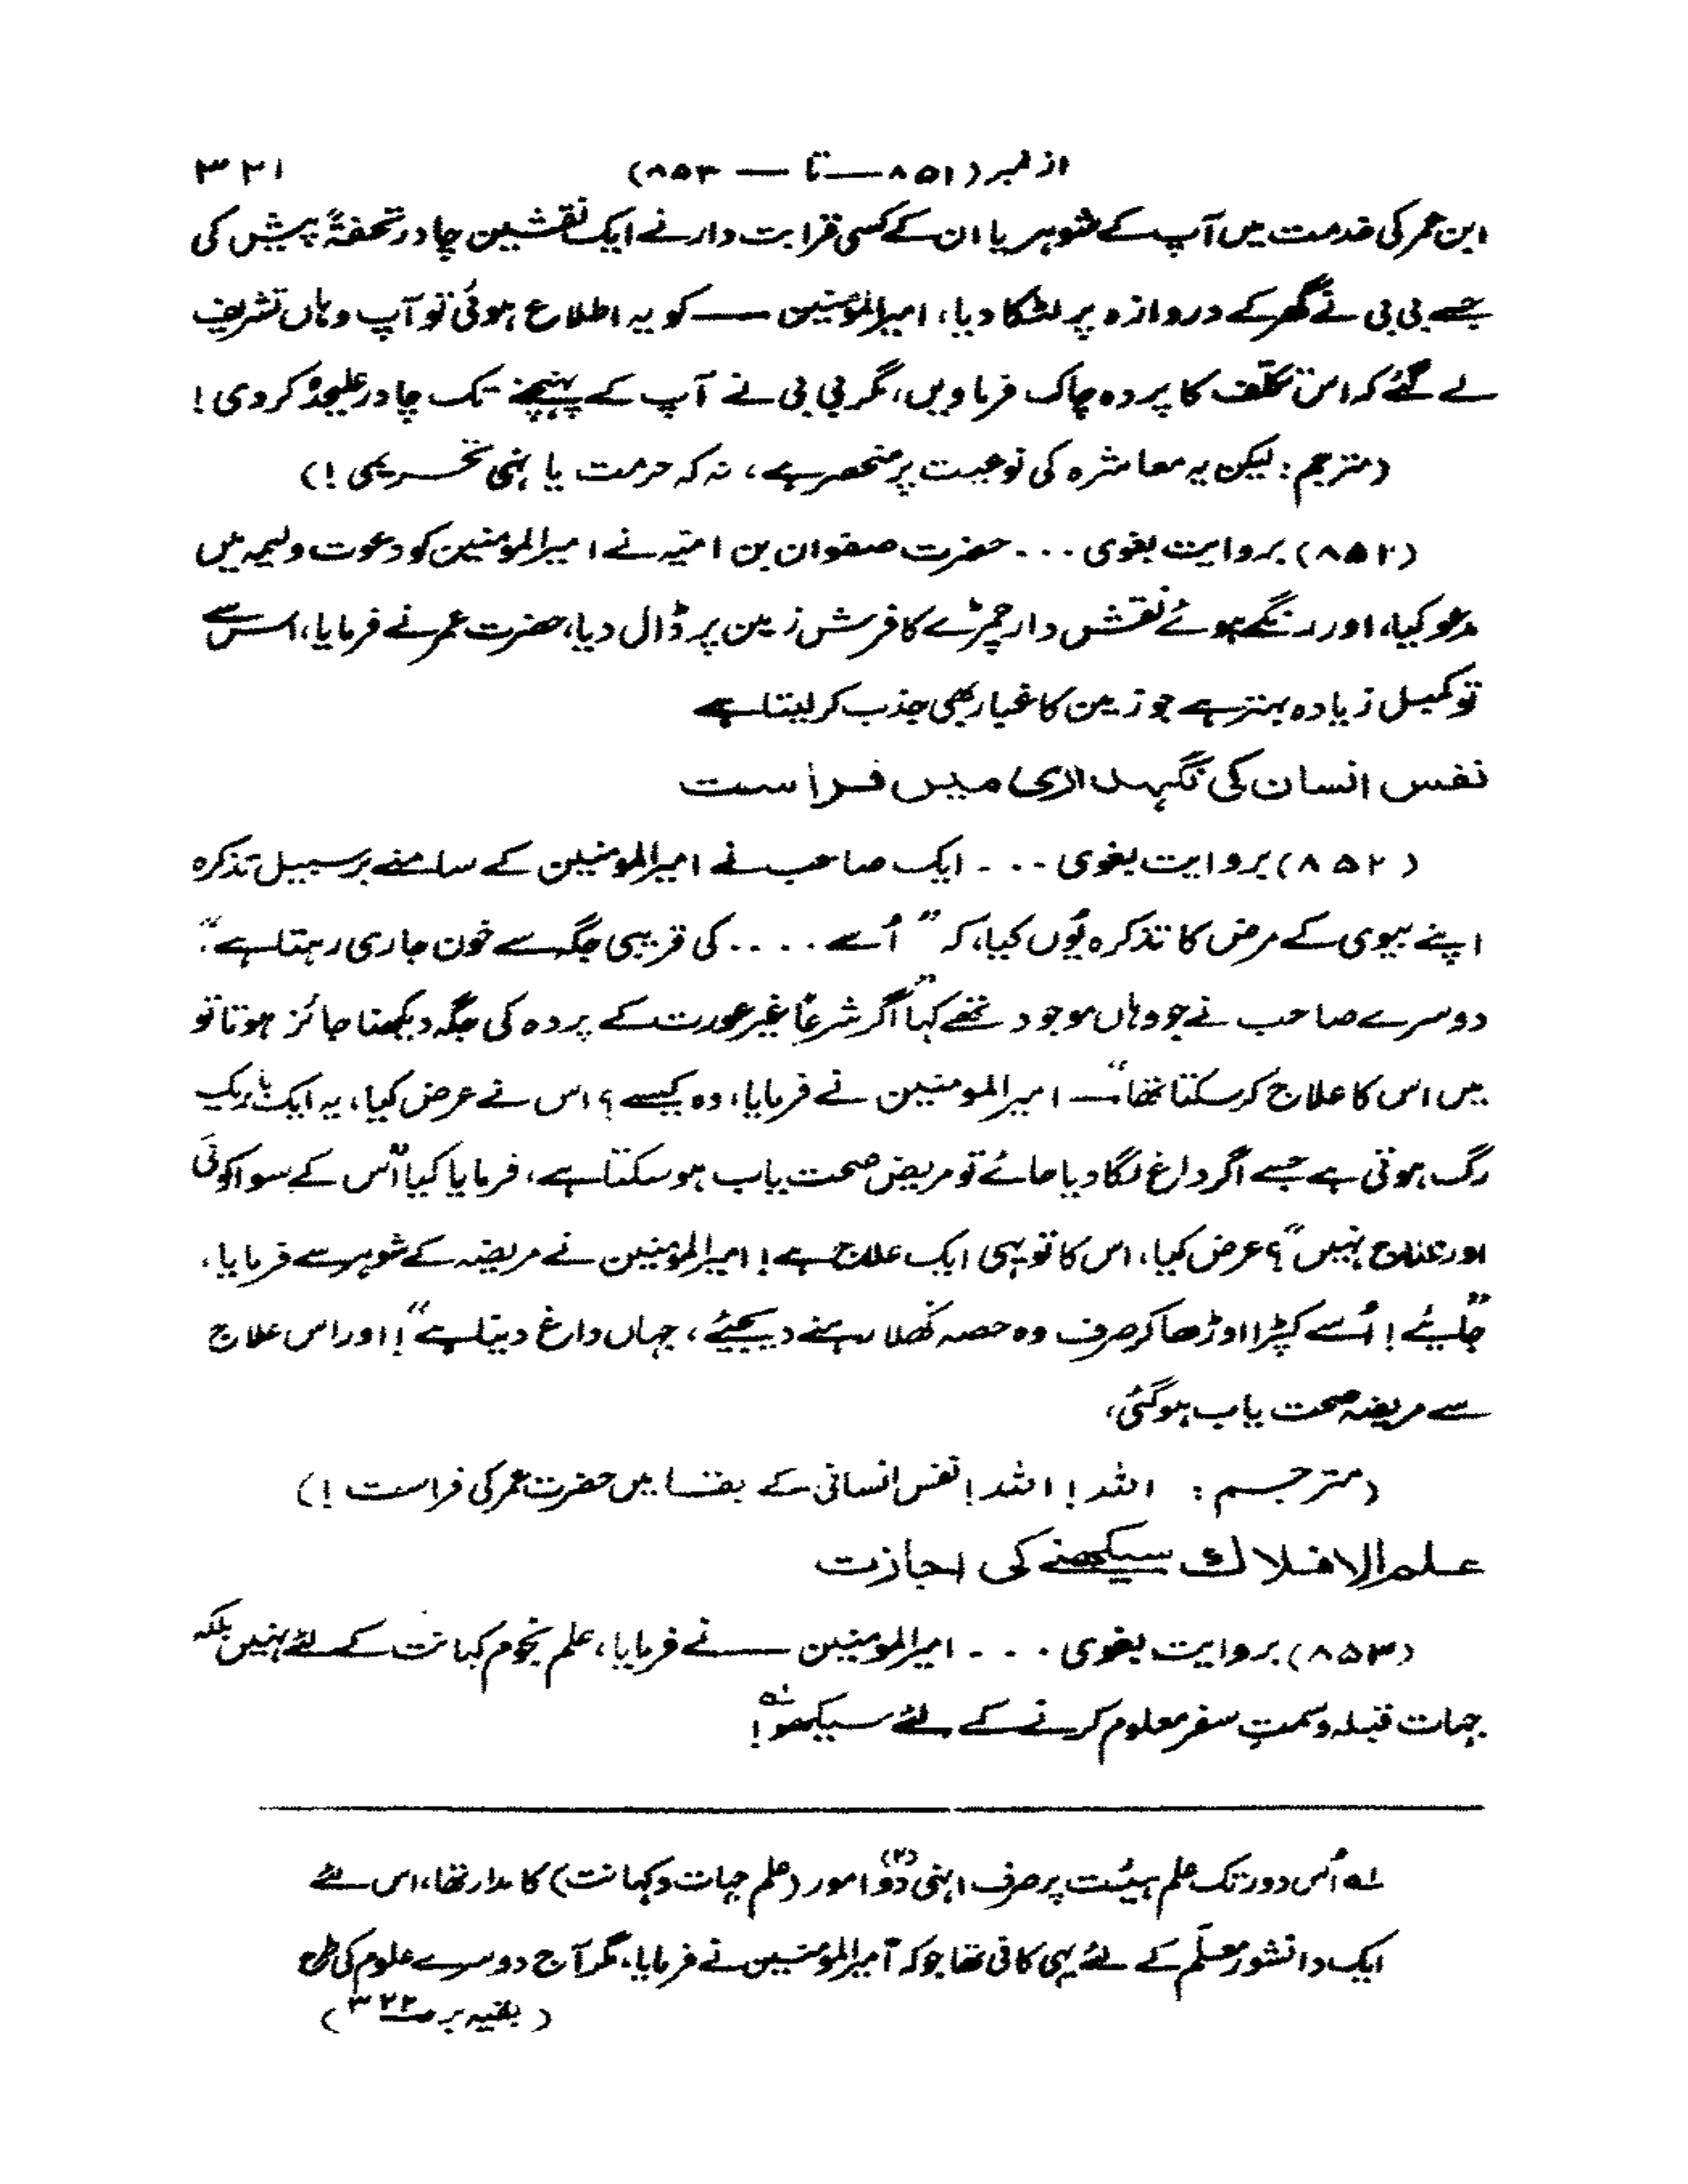 از نمبر (۸۵۱ — تا — ۸۵۳) ۳۲۱
ابن عمر کی خدمت میں آپ کے شوہر یا ان کے کسی قرابت دار نے ایک نقشین چادر تحفۃً پیش کی
جسے بی بی نے گھر کے دروازہ پر لٹکا دیا، امیرالمؤمنین — کو یہ اطلاع ہوئی تو آپ وہاں تشریف
لے گئے کہ اس تکلّف کا پردہ چاک فرماویں، مگر بی بی نے آپ کے پہنچنے تک چادر علیٰحدہ کر دی!
(مترجم: لیکن یہ معاشرہ کی نوعیت پر منحصر ہے، نہ کہ حرمت یا نہی تحریمی!)
(۸۵۲) بروایت بغوی ... حضرت صفوان بن امیّہ نے امیرالمؤمنین کو دعوت ولیمہ میں
مدعو کیا، اور رنگے ہوئے نقش دار چمڑے کا فرش زمین پر ڈال دیا، حضرت عمر نے فرمایا، اس سے
تو کمبل زیادہ بہتر ہے جو زمین کا غبار بھی جذب کر لیتا ہے
نفس انسان کی نگہداری میں فراست
(۸۵۲) بروایت بغوی ... ایک صاحب نے امیرالمومنین کے سامنے برسبیل تذکرہ
اپنے بیوی کے مرض کا تذکرہ یُوں کیا، کہ ” اُسے .... کی قریبی جگہ سے خون جاری رہتا ہے“
دوسرے صاحب نے جو وہاں موجود تھے کہا ”اگر شرعاً غیر عورت کے پردہ کی جگہ دیکھنا جائز ہوتا تو
میں اس کا علاج کر سکتا تھا“ — امیرالمومنین نے فرمایا، وہ کیسے؟ اس نے عرض کیا، یہ ایک باریک
رگ ہوتی ہے جسے اگر داغ لگا دیا جائے تو مریض صحت یاب ہو سکتا ہے، فرمایا کیا ”اس کے سوا کوئی
اور علاج نہیں“؟ عرض کیا، اس کا تو یہی ایک علاج ہے! امیرالمؤمنین نے مریضہ کے شوہر سے فرمایا،
”جائیے! اُسے کپڑا اوڑھا کر صرف وہ حصہ کھلا رہنے دیجئے، جہاں داغ دینا ہے“! اور اس علاج
سے مریضہ صحت یاب ہو گئی،
(مترجم : اللہ! اللہ! نفس انسانی کے بقا میں حضرت عمر کی فراست!)
علم الافلاک سیکھنے کی اجازت
(۸۵۳) بروایت بغوی ... امیرالمومنین — نے فرمایا، علم نجوم کہانت کے لئے نہیں بلکہ
جہات قبلہ و سمتِ سفر معلوم کرنے کے لئے سیکھو! ؎۱
؎۱ اُس دور تک علم ہیئت پر صرف انہی دو (۲) امور (علم جہات و کہانت) کا مدار تھا، اس لئے
ایک دانشور معلّم کے لئے یہی کافی تھا جو کہ امیرالمؤمنین نے فرمایا، مگر آج دوسرے علوم کی طرح
(بقیہ بر ص ۳۲۲)